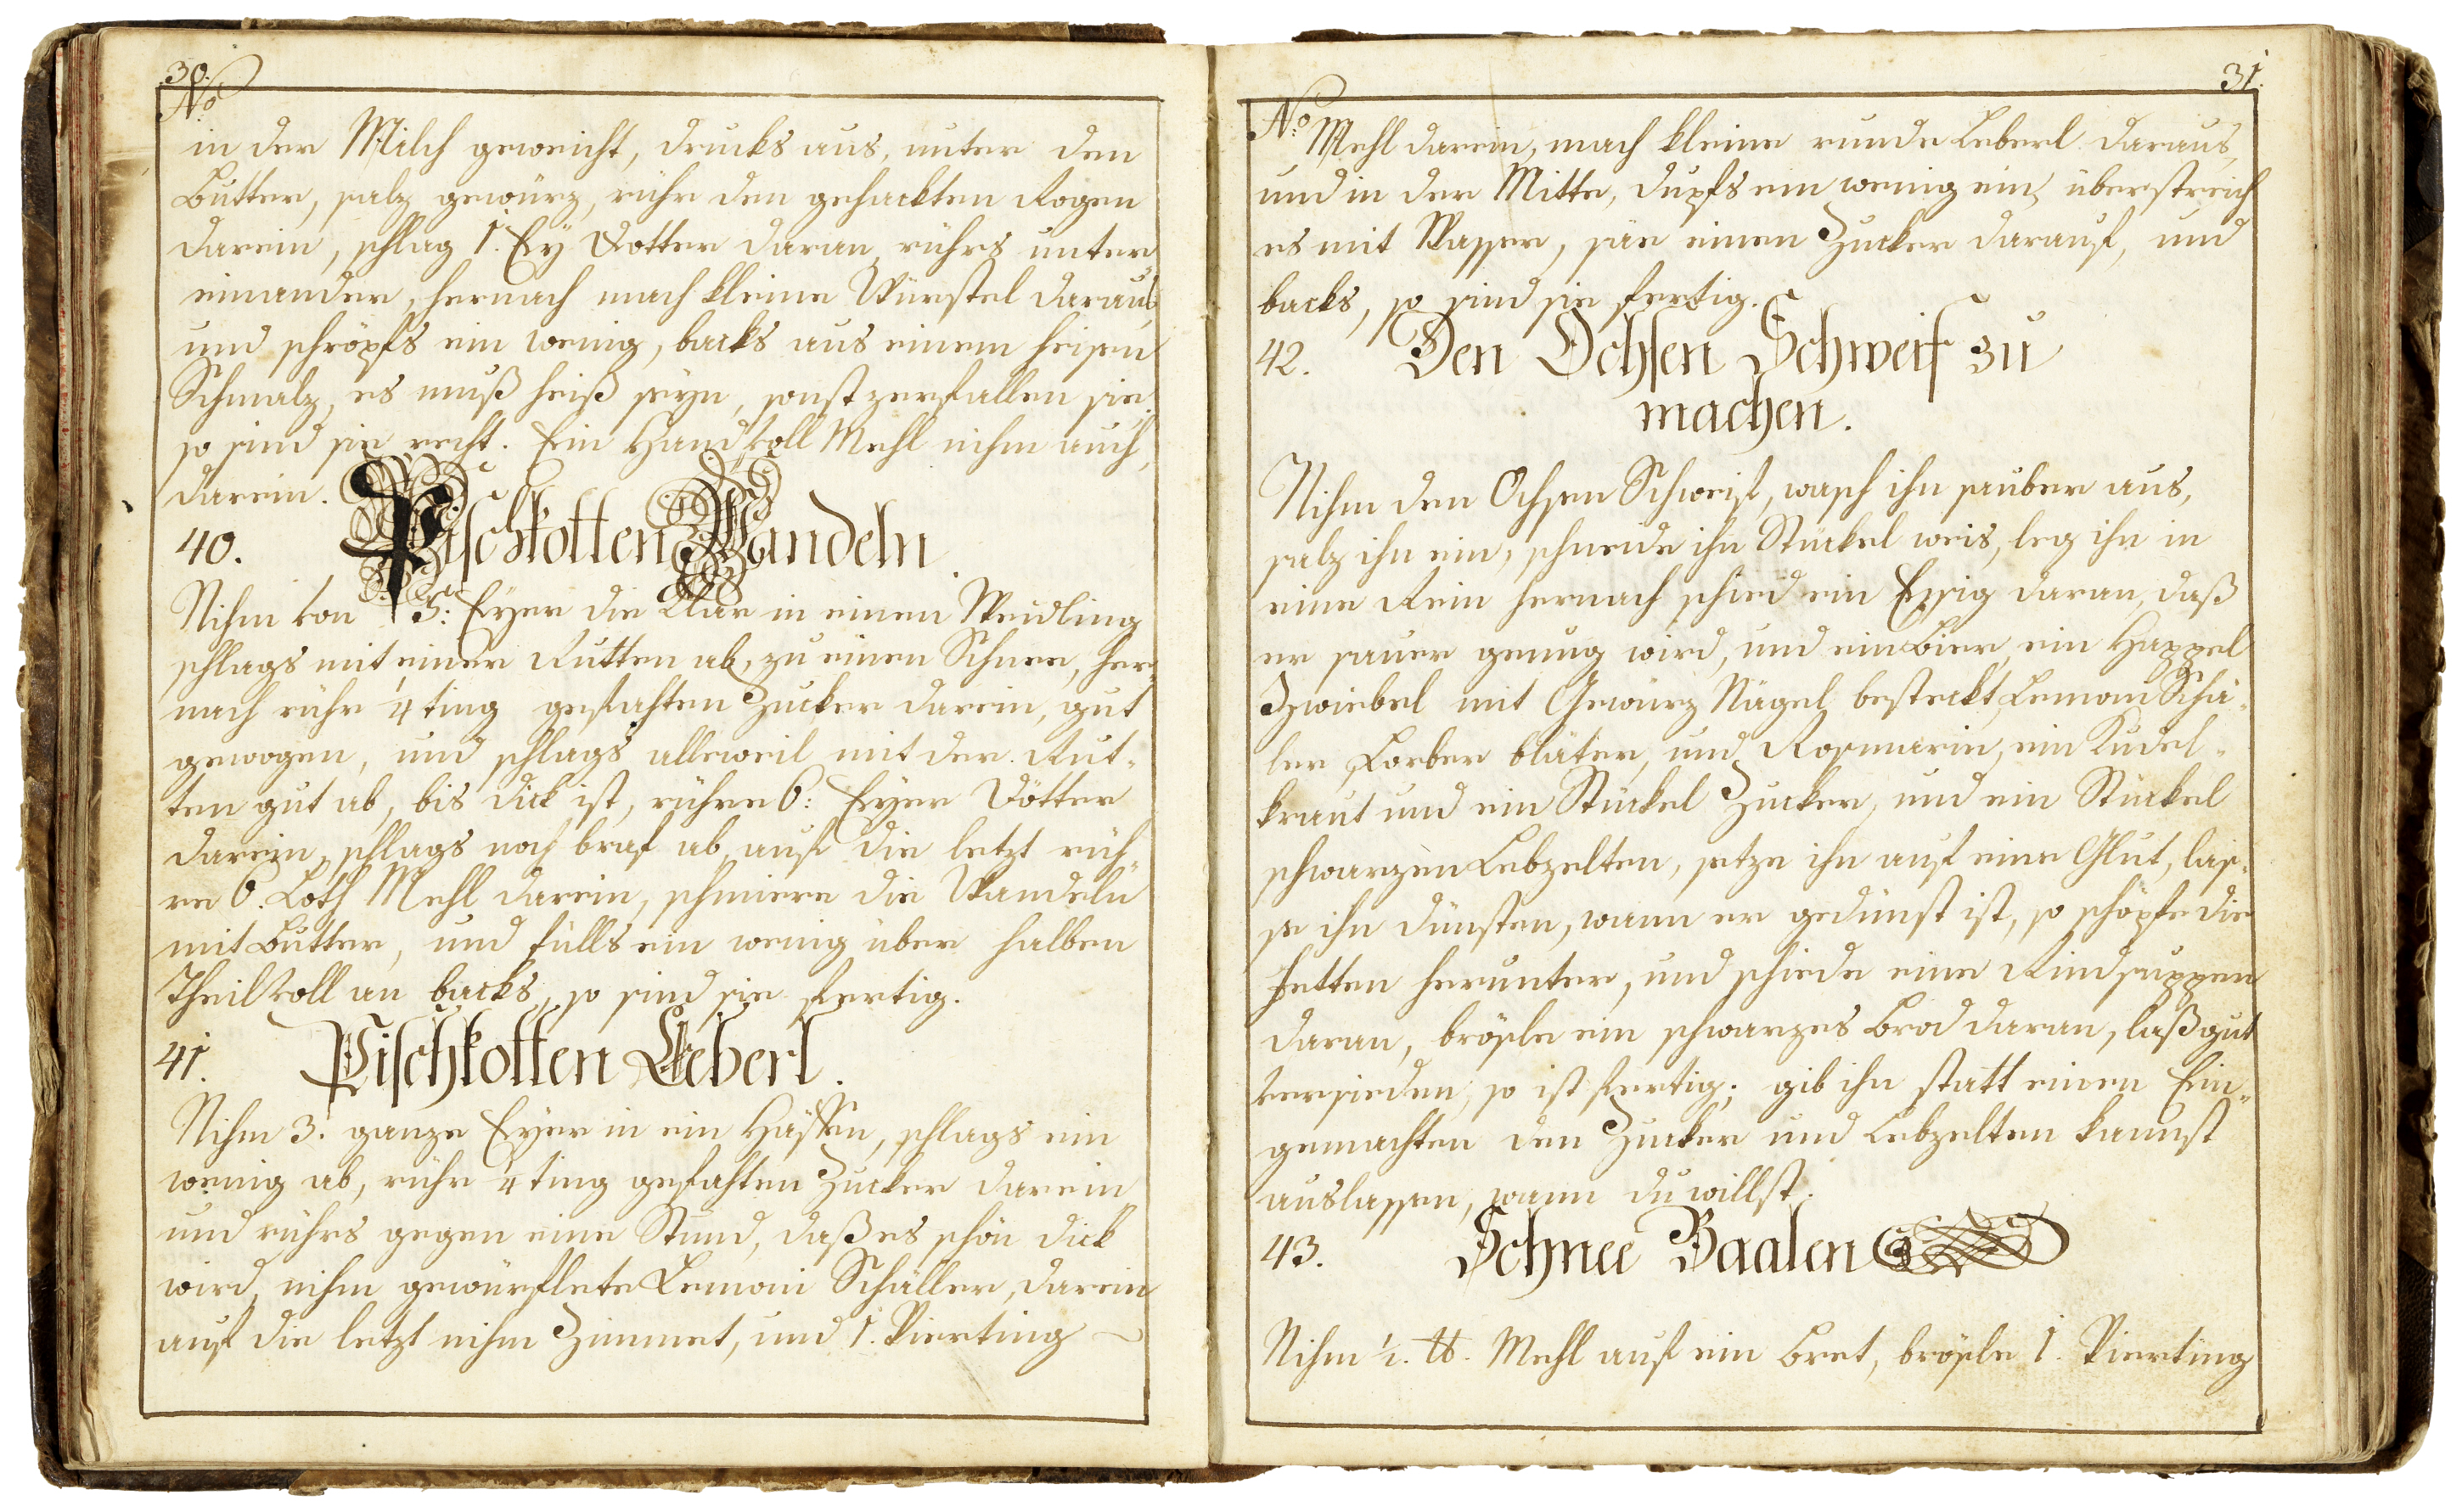 30.
No
in der Milch geweicht, drucks aus, unter den
Butter, salz gewürz, rühr den gehackten Rogen
darein, schlag 1. Ey Dotter daran, rührs unter
einander, hernach mach kleine Würstel daraus
und schröpfs ein wenig, backs aus einem heisen
Schmalz, es muß heiß seyn, sonst zerfallen sie,
so sind sie recht. Ein Hand voll Mehl nihm auch
darein.
40. Pischkotten Wandeln
Nihm von 5: Eyer die Klar in einen Weidling
schlags mit einer Rutten ab, zu einen Schnee, her„
nach rühr 1/4 ting gefahten Zucker darein, gut
gewogen, und schlags alleweil mit der Rut„
ten gut ab, bis dick ist, rühre 6: Eyer Dötter
darein, schlags noch braf ab, auf die letzt rüh„
re 6. Loth Mehl darein, schmiere die Wandeln
mit Butter, und fülls ein wenig über halben
Theil voll an backs, so sind sie fertig.
41. Pischkotten Leberl.
Nihm 3. ganze Eyer in ein Häffen, schlags ein
wenig ab, rühr 1/4 ting gefahten Zucker darein
und rührs gegen eine Stund, daß es schön dick
wird, nihm gewürflete Lemoni Schäller, darein
auf die letzt nihm Zimmet, und 1. Vierting
31.
No
Mehl darein, mach kleine runde Leberl daraus,
und in der Mitte, dupfs ein wenig ein, überstreich
es mit Wasser, säe einen Zucker darauf, und
backs, so sind sie fertig.
42. Den Ochsen Schweif zu
machen.
Nihm den Ochsen Schweif, wasch ihn sauber aus,
salz ihn ein, schneide ihn Stückel weis, leg ihn in
eine Rein hernach schied ein Essig daran, daß
er sauer genug wird, und ein Bier, ein Happel
Zwiebel mit Gewürz Nägel besteckt, Lemoni Schä„
ler Lorber bläter, und Rosmarin, ein Kudel„
kraut und ein Stückel Zucker, und ein Stückel
schwarzen Lebzelten, setze ihn auf eine Glut, las„
se ihn dünsten, wann er gedünst ist, so schöpfe die
Fetten herunter, und schiede eine Rindsuppen
daran, brösle ein schwarzes Brod daran, laß gut
versieden, so ist fertig; gib ihn statt einen Ein„
gemachten den Zucker und Lebzelten kannst
auslassen, wann du willst.
43. Schnee Baalen
Nihm 1/2. ℔. Mehl auf ein Bret, brösle 1. Vierting